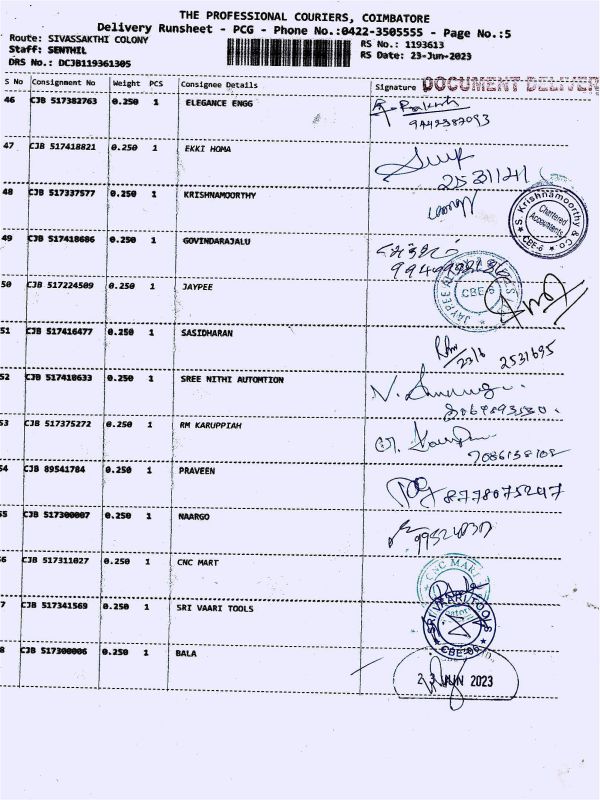 THE PROFESSIONAL COURIERS, COIMBATORE
Delivery Runsheet - PCG - Phone No.:0422-3505555 - Page No.:5
Route: SIVASSAKTHI COLONY
RS No.: 1193613
Staff: SENTHIL
RS Date: 23-Jun-2023
DRS No.: DCJB119361305
S No Consignment No Weight PCS Consignee Details Signature DOCUMENT DELIVER
46 CJB 517382763 0.250 1 ELEGANCE ENGG
9442382093
47 CJB 517418821 0.250 1 EKKI HOMA
48 CJB 517337577 0.250 1 KRISHNAMOORTHY
S. Krishnamoorthy & Co Chartered Accountants CBE-6
49 CJB 517418686 0.250 1 GOVINDARAJALU
50 CJB 517224509 0.250 1 JAYPEE
JAYPEE CBE-6
51 CJB 517416477 0.250 1 SASIDHARAN
23/6 2531695
52 CJB 517418633 0.250 1 SREE NITHI AUTOMTION
53 CJB 517375272 0.250 1 RM KARUPPIAH
54 CJB 89541784 0.250 1 PRAVEEN
8778075247
55 CJB 517300007 0.250 1 NAARGO
6 CJB 517311027 0.250 1 CNC MART
CNC MART
7 CJB 517341569 0.250 1 SRI VAARI TOOLS
SRI VAARI TOOLS
8 CJB 517300006 0.250 1 BALA
23 JUN 2023